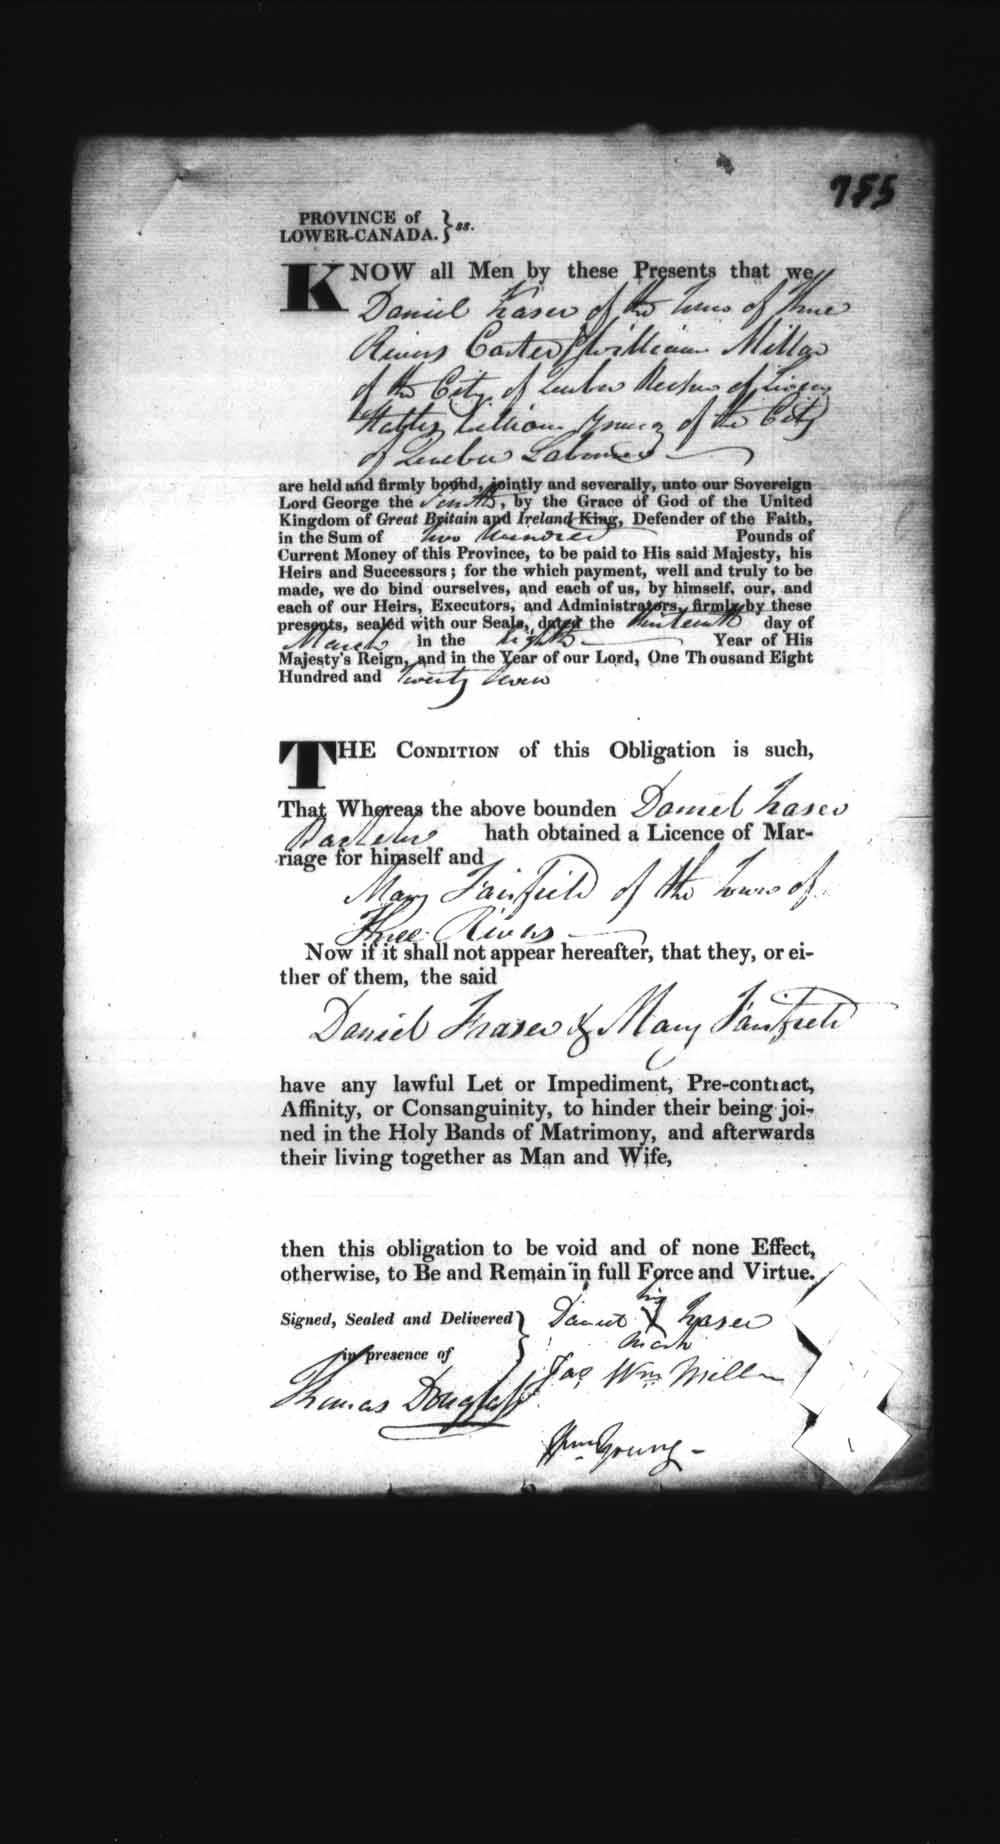 755
PROVINCE of
LOWER-CANADA. } ss.
KNOW all Men by these Presents that we
Daniel Fraser of the Town of Three
Rivers Carter William Millar
of the City of Quebec Keeper of Livery
Stables William Young of the City
of Quebec Labourer
are held and firmly bound, jointly and severally, unto our Sovereign
Lord George the Fourth, by the Grace of God of the United
Kingdom of Great Britain and Ireland King, Defender of the Faith,
in the Sum of Two Hundred Pounds of
Current Money of this Province, to be paid to His said Majesty, his
Heirs and Successors; for the which payment, well and truly to be
made, we do bind ourselves, and each of us, by himself, our, and
each of our Heirs, Executors, and Administrators, firmly by these
presents, sealed with our Seals, dated the thirteenth day of
March in the Eighth Year of His
Majesty's Reign, and in the Year of our Lord, One Thousand Eight
Hundred and twenty seven
THE CONDITION of this Obligation is such,
That Whereas the above bounden Daniel Fraser
Bachelor hath obtained a Licence of Mar-
riage for himself and
Mary Fairfield of the Town of
Three Rivers
Now if it shall not appear hereafter, that they, or ei-
ther of them, the said
Daniel Fraser & Mary Fairfield
have any lawful Let or Impediment, Pre-contract,
Affinity, or Consanguinity, to hinder their being joi-
ned in the Holy Bands of Matrimony, and afterwards
their living together as Man and Wife,
then this obligation to be void and of none Effect,
otherwise, to Be and Remain in full Force and Virtue.
his
Signed, Sealed and Delivered } Daniel X Fraser
mark
in presence of
Jas Wm Millar
Thomas Douglass
Wm Young